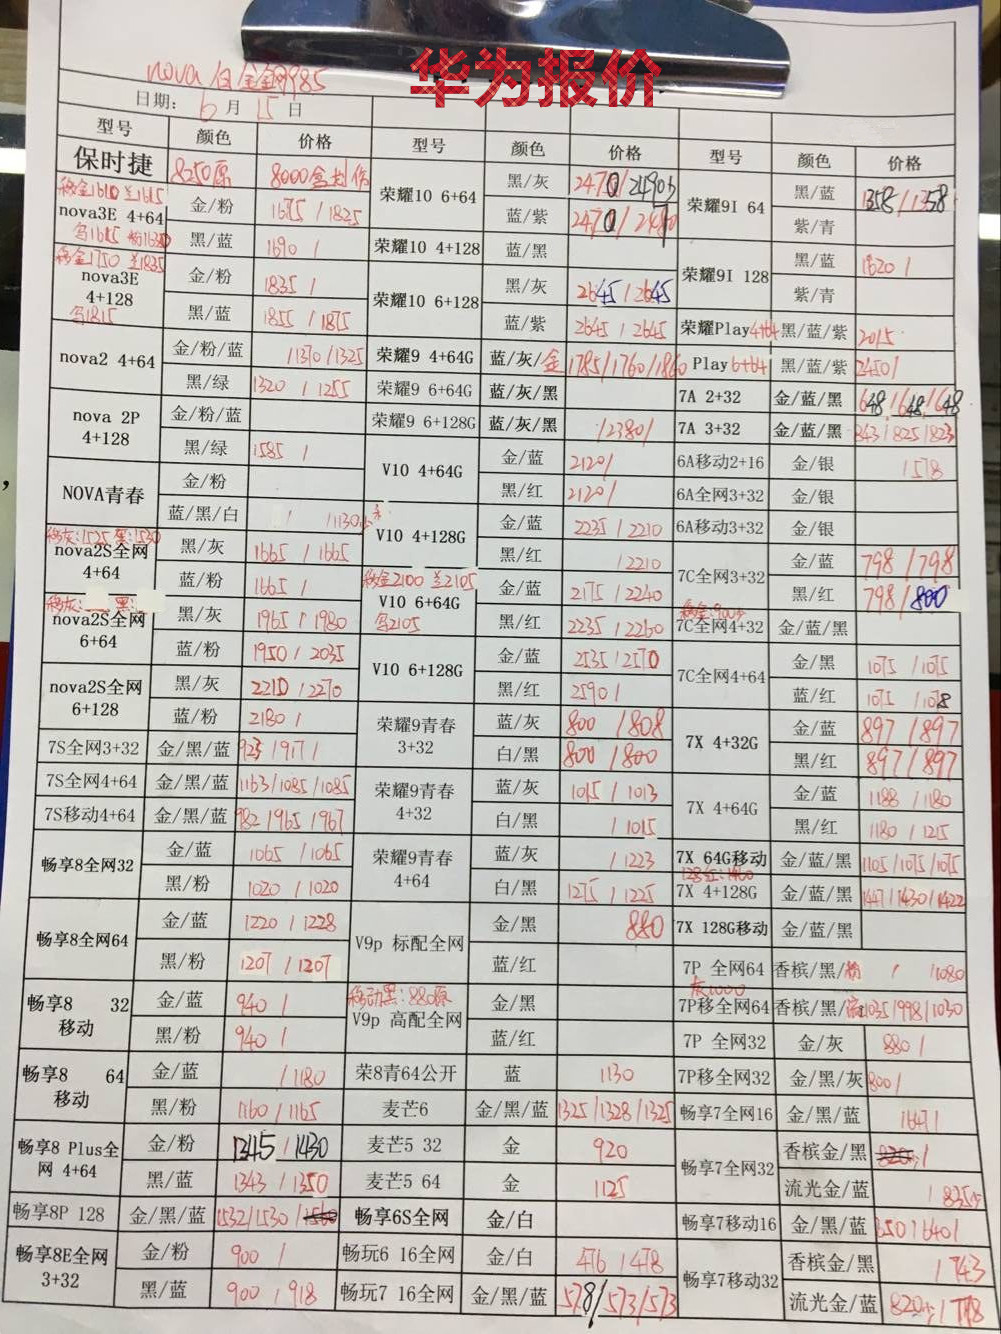 华为报价
日期: 6月15日
型号 颜色 价格 型号 颜色 价格 型号 颜色 价格
保时捷 8250原 8000
荣耀10 6+64 黑/灰
蓝/紫
荣耀9I 64 黑/蓝
紫/青
nova3E 4+64 金/粉 1675 / 1825
黑/蓝 1690 /
荣耀10 4+128 蓝/黑
荣耀9I 128 黑/蓝 1620 /
紫/青
nova3E 4+128 金/粉 1835 /
黑/蓝 1855 / 1875
荣耀10 6+128 黑/灰 2645 / 2645
蓝/紫 2645 / 2645
荣耀Play4+64 黑/蓝/紫 2015
nova2 4+64 金/粉/蓝 /1370/1325
黑/绿 1320 / 1255
荣耀9 4+64G 蓝/灰/金 1785/1760/1860
Play 6+64 黑/蓝/紫 2450/
荣耀9 6+64G 蓝/灰/黑
7A 2+32 金/蓝/黑 648/648/648
nova 2P 4+128 金/粉/蓝
黑/绿 1585 /
荣耀9 6+128G 蓝/灰/黑 /2380/
7A 3+32 金/蓝/黑 843/825/823
V10 4+64G 金/蓝 2120/
黑/红 2120/
6A移动2+16 金/银 1578
NOVA青春 金/粉
蓝/黑/白
6A全网3+32 金/银
V10 4+128G 金/蓝 2235 / 2210
黑/红 / 2210
6A移动3+32 金/银
nova2S全网 4+64 黑/灰 1665 / 1665
蓝/粉 1665 /
7C全网3+32 金/蓝 798 / 798
黑/红 798 / 800
移金2100 兰2105
V10 6+64G 金/蓝 2175 / 2240
黑/红 2235 / 2260
nova2S全网 6+64 黑/灰 1965 / 1980
蓝/粉 1950 / 2035
7C全网4+32 金/蓝/黑
V10 6+128G 金/蓝 2535 / 2570
黑/红 2590 /
7C全网4+64 金/黑 1075 / 1075
蓝/红 1075 / 1078
nova2S全网 6+128 黑/灰 2210 / 2270
蓝/粉 2180 /
荣耀9青春 3+32 蓝/灰 800 / 808
白/黑 800 / 800
7X 4+32G 金/蓝 897 / 897
黑/红 897 / 897
7S全网3+32 金/黑/蓝 923 / 917 /
7S全网4+64 金/黑/蓝 1163/1085/1085
荣耀9青春 4+32 蓝/灰 1015 / 1013
白/黑 / 1015
7X 4+64G 金/蓝 1188 / 1180
黑/红 1180 / 1215
7S移动4+64 金/黑/蓝 982 / 965 / 967
畅享8全网32 金/蓝 1065 / 1065
黑/粉 1020 / 1020
荣耀9青春 4+64 蓝/灰 / 1223
白/黑 1275 / 1225
7X 64G移动 金/蓝/黑 1105/1075/1075
7X 4+128G 金/蓝/黑 1447/1430/1422
畅享8全网64 金/蓝 1220 / 1228
黑/粉 1207 / 1207
V9p 标配全网 金/黑 880
蓝/红
7X 128G移动 金/蓝/黑
7P 全网64 香槟/黑/粉 / /1080
畅享8 32 移动 金/蓝 940 /
黑/粉 940 /
移动黑:880原
V9p 高配全网 金/黑
蓝/红
7P移全网64 香槟/黑/ 1035/998/1030
7P 全网32 金/灰 880 /
畅享8 64 移动 金/蓝 / 1180
黑/粉 1160 / 1165
荣8青64公开 蓝 1130
7P移全网32 金/黑/灰 800/
麦芒6 金/黑/蓝 1325/1328/1325
畅享7全网16 金/黑/蓝
畅享8 Plus全网 4+64 金/粉 1345 / 1430
黑/蓝 1343 / 1350
麦芒5 32 金 920
麦芒5 64 金 1125
畅享7全网32 香槟金/黑
流光金/蓝
畅享8P 128 金/黑/蓝 1532/1530/
畅享6S全网 金/白
畅享7移动16 金/黑/蓝
畅享8E全网 3+32 金/粉 900 /
黑/蓝 900 / 918
畅玩6 16全网 金/白 476 / 478
畅玩7 16全网 金/黑/蓝 578/573/573
畅享7移动32 香槟金/黑 / 743
流光金/蓝